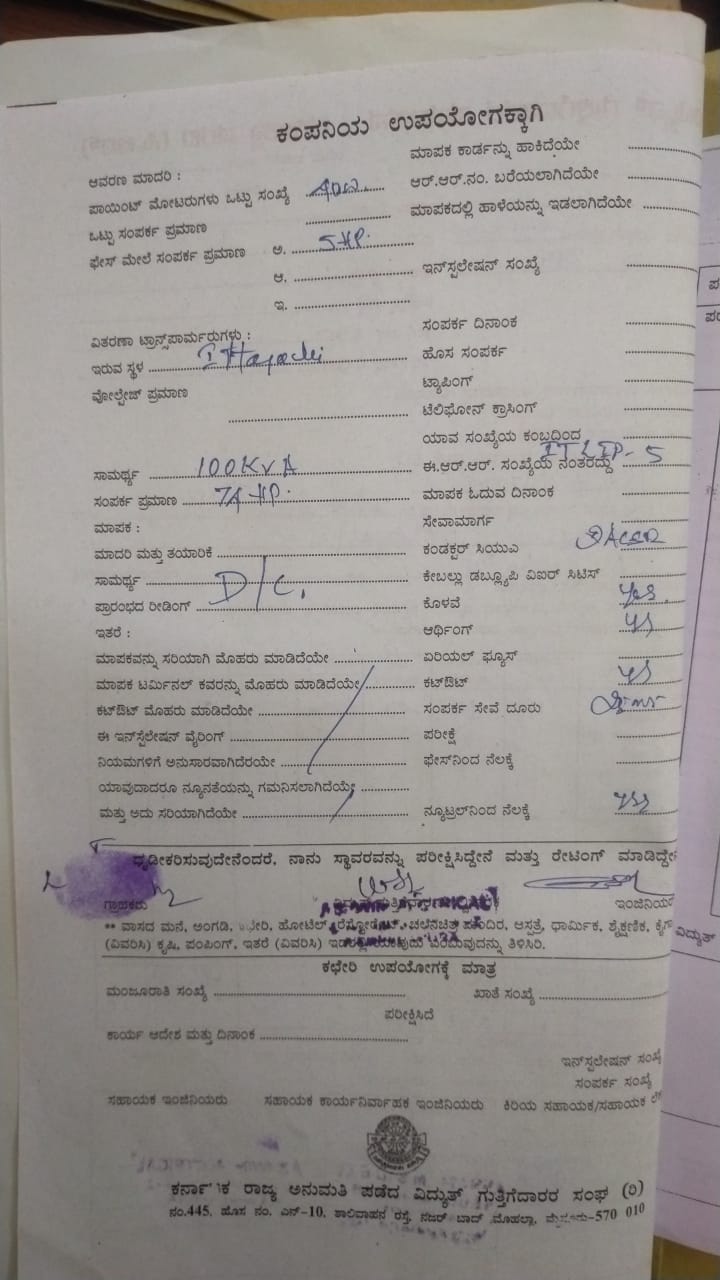 ಕಂಪನಿಯ ಉಪಯೋಗಕ್ಕಾಗಿ
ಆವರಣ ಮಾದರಿ :
ಪಾಯಿಂಟ್ ಮೋಟರುಗಳು ಒಟ್ಟು ಸಂಖ್ಯೆ 40W
ಒಟ್ಟು ಸಂಪರ್ಕ ಪ್ರಮಾಣ
ಫೇಸ್ ಮೇಲೆ ಸಂಪರ್ಕ ಪ್ರಮಾಣ ಅ. 5 HP.
ಆ.
ಇ.
ವಿತರಣಾ ಟ್ರಾನ್ಸ್‌ಪಾರ್ಮರುಗಳು :
ಇರುವ ಸ್ಥಳ
ವೋಲ್ಟೇಜ್ ಪ್ರಮಾಣ
ಸಾಮರ್ಥ್ಯ 100KVA
ಸಂಪರ್ಕ ಪ್ರಮಾಣ 74 HP.
ಮಾಪಕ :
ಮಾದರಿ ಮತ್ತು ತಯಾರಿಕೆ
ಸಾಮರ್ಥ್ಯ D/C.
ಪ್ರಾರಂಭದ ರೀಡಿಂಗ್
ಇತರೆ :
ಮಾಪಕವನ್ನು ಸರಿಯಾಗಿ ಮೊಹರು ಮಾಡಿದೆಯೇ
ಮಾಪಕ ಟರ್ಮಿನಲ್ ಕವರನ್ನು ಮೊಹರು ಮಾಡಿದೆಯೇ
ಕಟ್‌ಔಟ್ ಮೊಹರು ಮಾಡಿದೆಯೇ
ಈ ಇನ್‌ಸ್ಟಲೇಷನ್ ವೈರಿಂಗ್
ನಿಯಮಗಳಿಗೆ ಅನುಸಾರವಾಗಿದೆರಯೇ
ಯಾವುದಾದರೂ ನ್ಯೂನತೆಯನ್ನು ಗಮನಿಸಲಾಗಿದೆಯೇ
ಮತ್ತು ಅದು ಸರಿಯಾಗಿದೆಯೇ
ಮಾಪಕ ಕಾರ್ಡನ್ನು ಹಾಕಿದೆಯೇ
ಆರ್.ಆರ್.ನಂ. ಬರೆಯಲಾಗಿದೆಯೇ
ಮಾಪಕದಲ್ಲಿ ಹಾಳೆಯನ್ನು ಇಡಲಾಗಿದೆಯೇ
ಇನ್‌ಸ್ಪಲೇಷನ್ ಸಂಖ್ಯೆ
ಸಂಪರ್ಕ ದಿನಾಂಕ
ಹೊಸ ಸಂಪರ್ಕ
ಟ್ಯಾಪಿಂಗ್
ಟೆಲಿಫೋನ್ ಕ್ರಾಸಿಂಗ್
ಯಾವ ಸಂಖ್ಯೆಯ ಕಂಬದಿಂದ
ಈ.ಆರ್.ಆರ್. ಸಂಖ್ಯೆಯ ನಂತರದ್ದು
ಮಾಪಕ ಓದುವ ದಿನಾಂಕ
ಸೇವಾಮಾರ್ಗ
ಕಂಡಕ್ಟರ್ ಸಿಯುಎ ACSR
ಕೇಬಲ್ಲು ಡಬ್ಲ್ಯೂಪಿ ವಿಐರ್ ಸಿಟಿಸ್
ಕೊಳವೆ Yes.
ಆರ್ಥಿಂಗ್ ys
ಏರಿಯಲ್ ಫ್ಯೂಸ್
ಕಟ್‌ಔಟ್ ys
ಸಂಪರ್ಕ ಸೇವೆ ದೂರು
ಪರೀಕ್ಷೆ
ಫೇಸ್‌ನಿಂದ ನೆಲಕ್ಕೆ
ನ್ಯೂಟ್ರಲ್‌ನಿಂದ ನೆಲಕ್ಕೆ yes
ಧೃಡೀಕರಿಸುವುದೇನೆಂದರೆ, ನಾನು ಸ್ಥಾವರವನ್ನು ಪರೀಕ್ಷಿಸಿದ್ದೇನೆ ಮತ್ತು ರೇಟಿಂಗ್ ಮಾಡಿದ್ದೇನೆ
ಗ್ರಾಹಕರು ಇಂಜಿನಿಯರ್
** ವಾಸದ ಮನೆ, ಅಂಗಡಿ, ಹೋಟೆಲ್, ಚಲನಚಿತ್ರ ಮಂದಿರ, ಆಸ್ಪತ್ರೆ, ಧಾರ್ಮಿಕ, ಶೈಕ್ಷಣಿಕ,
(ವಿವರಿಸಿ) ಕೃಷಿ, ಪಂಪಿಂಗ್, ಇತರೆ (ವಿವರಿಸಿ) ಎಂಬುವುದನ್ನು ತಿಳಿಸಿರಿ.
ವಿದ್ಯುತ್
ಕಛೇರಿ ಉಪಯೋಗಕ್ಕೆ ಮಾತ್ರ
ಮಂಜೂರಾತಿ ಸಂಖ್ಯೆ ಖಾತೆ ಸಂಖ್ಯೆ
ಪರೀಕ್ಷಿಸಿದೆ
ಕಾರ್ಯ ಆದೇಶ ಮತ್ತು ದಿನಾಂಕ
ಇನ್‌ಸ್ಪಲೇಷನ್ ಸಂಖ್ಯೆ
ಸಂಪರ್ಕ ಸಂಖ್ಯೆ
ಸಹಾಯಕ ಇಂಜಿನಿಯರು ಸಹಾಯಕ ಕಾರ್ಯನಿರ್ವಾಹಕ ಇಂಜಿನಿಯರು ಕಿರಿಯ ಸಹಾಯಕ/ಸಹಾಯಕ
ಕರ್ನಾಟಕ ರಾಜ್ಯ ಅನುಮತಿ ಪಡೆದ ವಿದ್ಯುತ್ ಗುತ್ತಿಗೆದಾರರ ಸಂಘ (ರಿ)
ನಂ.445, ಹೊಸ ನಂ. ಎನ್-10, ಶಾಲಿವಾಹನ ರಸ್ತೆ, ನಜರ್ ಬಾದ್ ಮೊಹಲ್ಲಾ, ಮೈಸೂರು-570 010